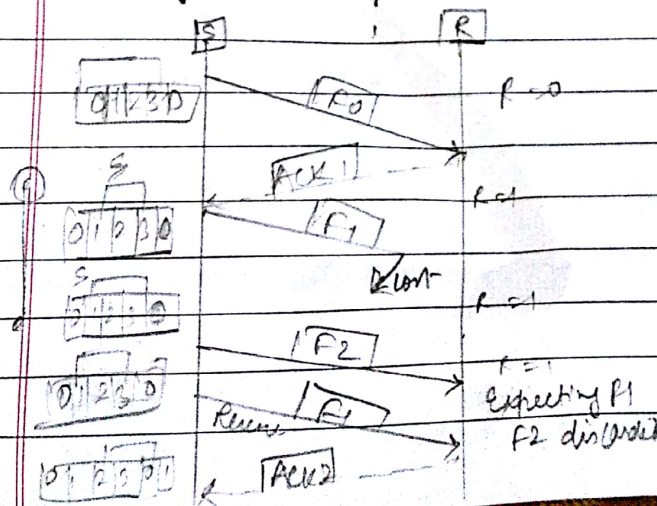 S R
0 1 2 3 0 F0 R = 0
ACK1
S R = 1
0 1 2 3 0 F1
lost
S R = 1
F2
R = 1
0 1 2 3 0 F1 Expecting F1
F2 discarded
0 1 2 3 0 1 ACK2